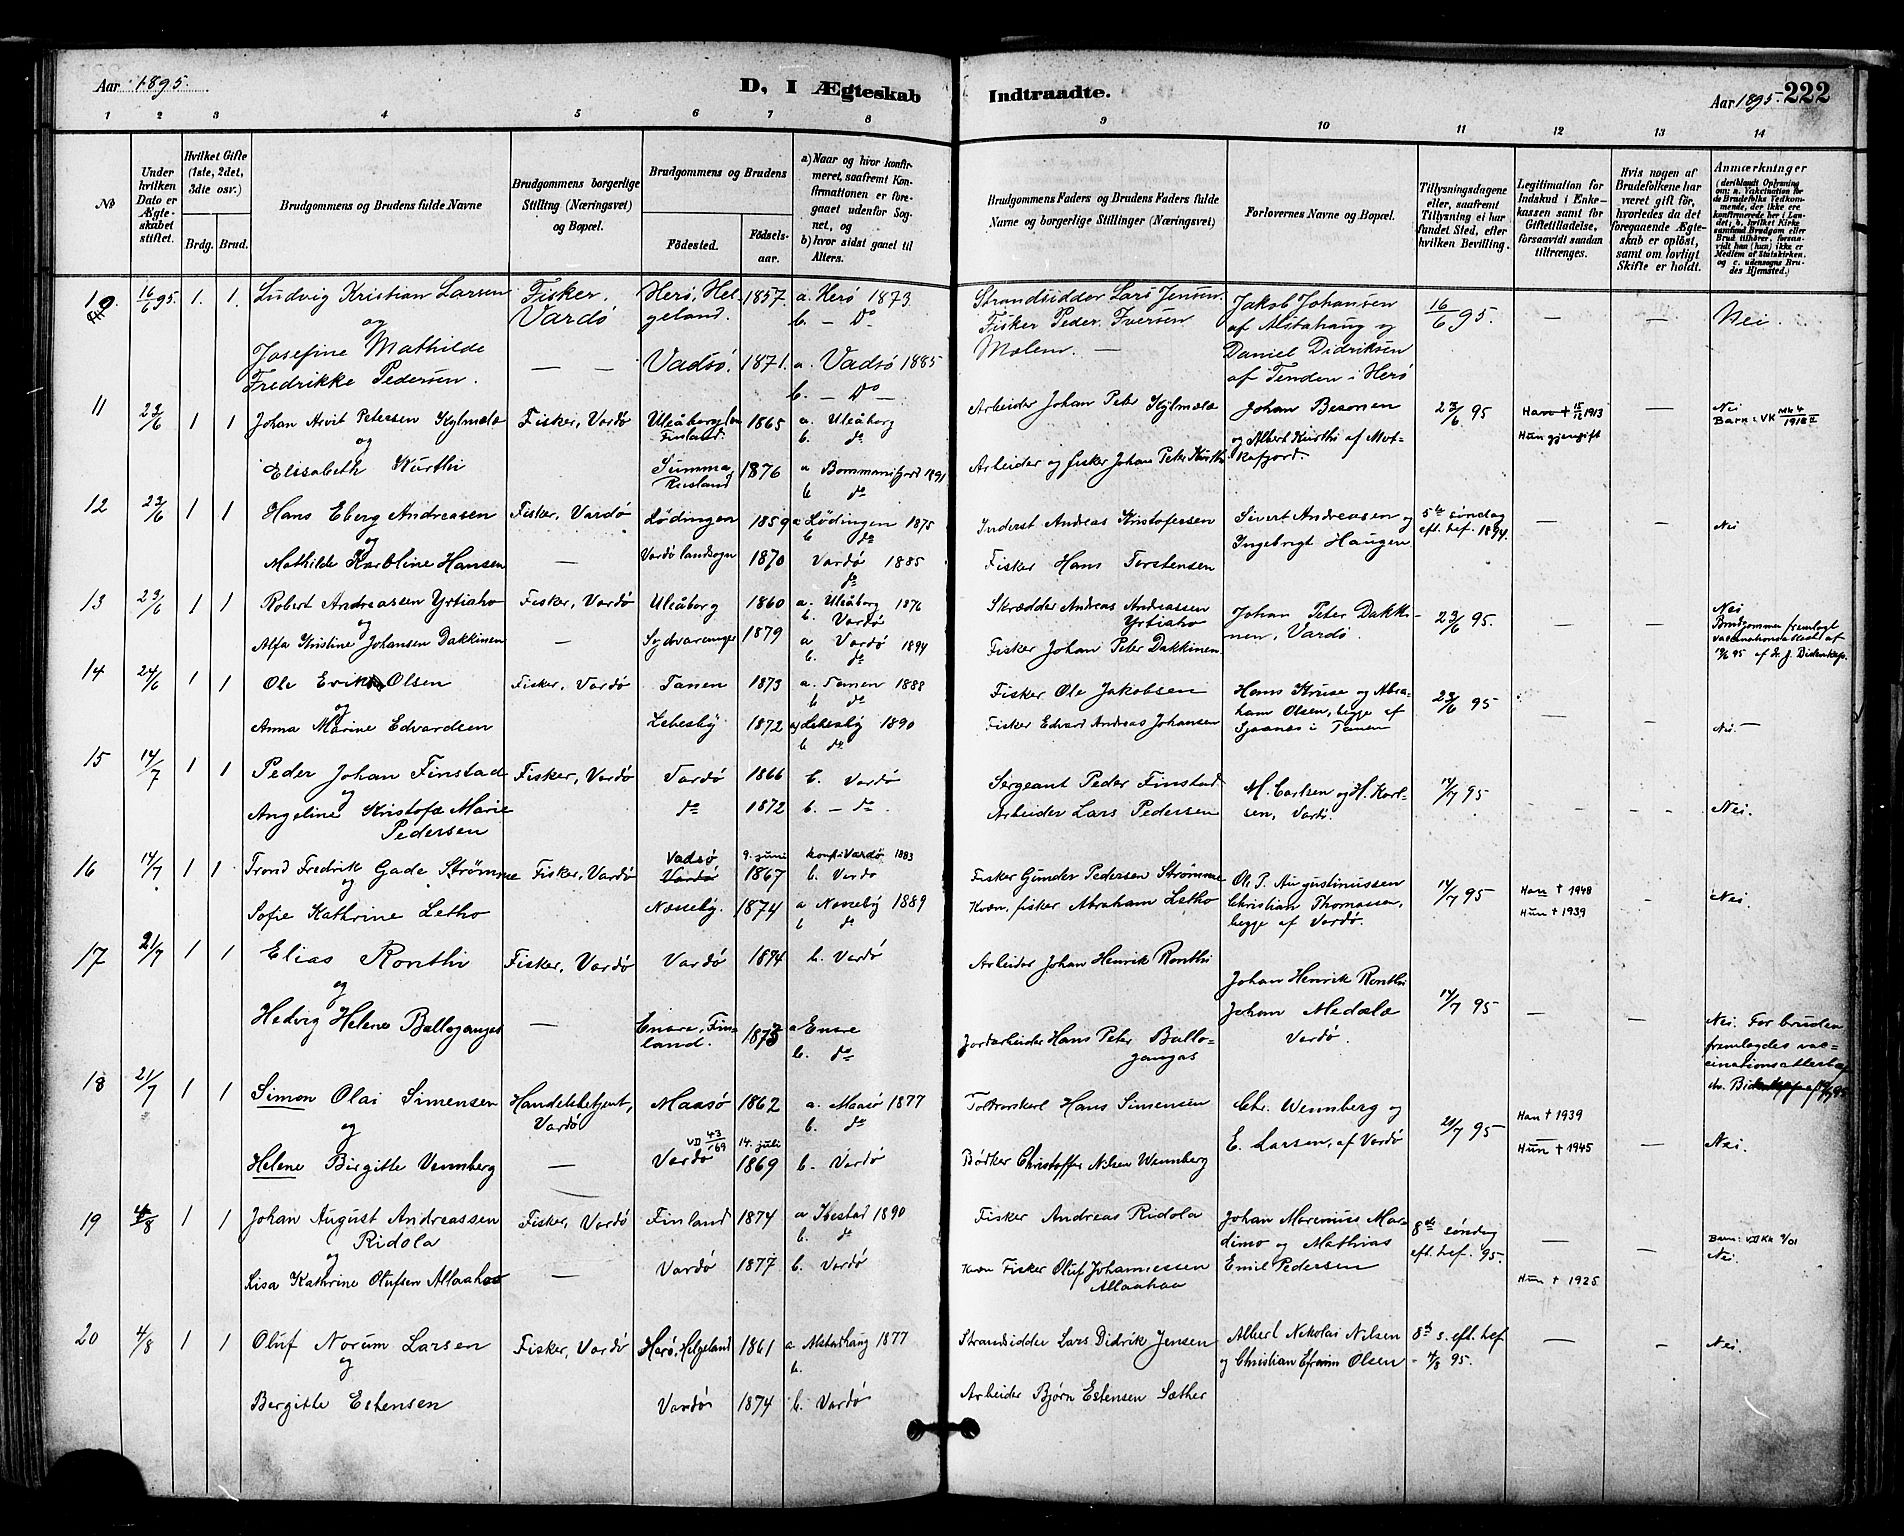 Aar 1895.
D, I Ægteskab
Indtraadte.
Aar 1895. 222
1 2 3 4 5 6 7 8 9 10 11 12 13 14
No
Under hvilken Dato er Ægteskabet stiftet.
Hvilket Gifte (1ste, 2det, 3die osv.)
Brdg. Brud.
Brudgommens og Brudens fulde Navne
Brudgommens borgerlige Stilling (Næringsvei) og Bopæl.
Brudgommens og Brudens
Fødested.
Fødselsaar.
a) Naar og hvor konfirmeret, saafremt Konfirmationen er foregaaet udenfor Sognet, og
b) hvor sidst gaaet til Alters.
Brudgommens Faders og Brudens Faders fulde Navne og borgerlige Stillinger (Næringsvei)
Forlovernes Navne og Bopæl.
Tillysningsdagene eller, saafremt Tillysning ei har fundet Sted, efter hvilken Bevilling.
Legitimation for Indskud i Enkekassen samt for Giftetilladelse, forsaavidt saadan tiltrænges.
Hvis nogen af Brudefolkene har været gift før, hvorledes da det foregaaende Ægteskab er opløst, samt om lovligt Skifte er holdt.
Anmærkninger
(deriblandt Oplysning om: a. Vakcination for de Brudefolks Vedkommende, der ikke ere konfirmerede her i Landet; b. hvilket Kirkesamfund Brudgom eller Brud tilhører, forsaavidt han (hun) ikke er Medlem af Statskirken, og c. udensogns Brudes Hjemsted.)
10. 16/6 95. 1. 1. Ludvig Kristian Larsen Fisker, Vardø Herø, Helgeland. 1857 a. Herø 1873 b. — Do Strandsidder Lars Jensen. Jakob Johansen af Alstahaug og 16/6 95. — — Nei.
og
Josefine Mathilde Fredrikke Pedersen. — — Vadsø. 1871. a. Vadsø 1885 b. — Do Fisker Peder Iversen Molem. — Daniel Didriksen af Tenden i Herø
11 23/6 1 1 Johan Arvit Petersen Kylmälä Fisker, Vardø Uleåborg len Finland. 1865 a. Uleåborg b. do Arbeider Johan Peter Kylmälä Johan Besonen 23/6 95 Han † 15/12 1913 — Nei
og
og Albert Kurthi af Motkafjord. Hun gjengift Barn: VK Mk 4/1918 II
Elisabeth Kurthi Summa, Rusland 1876 a Bommanifjord 1891 b do Arbeider og fisker Johan Peter Kurthi
12 23/6 1 1 Hans Eberg Andreasen Fisker, Vardø Lødingen 1859 a Lødingen 1875 b do Inderst Andreas Kristofersen Sivert Andreasen og Ingebrigt Haugen 5te søndag eft. hef. 1894. — — Nei
og
Mathilde Karoline Hansen — Vardø landsogn 1870 Vardø 1885 do Fisker Hans Torstensen
13 23/6 1 1 Robert Andreassen Yrtiaho Fisker, Vardø Uleåborg 1860 a. Uleåborg 1876 b. Vardø Skrædder Andreas Andreassen Yrtiaho Johan Peter Dakkinen, Vardø. 23/6 95. — — Nei
og
Brudgommen fremlagt vaccinationsattest af
Alfa Kristine Johansen Dakkinen — Sydvaranger 1879 a Vardø 1894 b. do Fisker Johan Peter Dakkinen
14 24/6 1 1 Ole Erik Olsen Fisker, Vardø Tanen 1873 a. Tanen 1888 b do Fisker Ole Jakobsen Hans Kruse og Abraham Olsen, begge af Sjaanes i Tanen 23/6 95 — — Nei. —
og
Anna Marine Edvardsen Lebesby 1872 a Lebesby 1890 b do Fisker Edvard Andreas Johansen
15 14/7 1 1 Peder Johan Finstad Fisker, Vardø Vardø 1866 b. Vardø Sergeant Peder Finstad M. Carlsen og H. Karlsen, Vardø. 14/7 95 — — Nei.
og
Angeline Kristofa Marie Pedersen do 1872 b. — do. Arbeider Lars Pedersen
16 14/7 1 1. Trond Fredrik Gade Strømme Fisker, Vardø Vadsø Vardø 9. juni 1867 konf. i Vardø 1883 b. Vardø Fisker Gunder Pedersen Strømme Ole P. Augustinussen 14/7 95 Han † 1948 — Nei.
og
Christian Thomassen, begge af Vardø. Hun † 1939
Sofie Kathrine Letho Nesseby. 1874 a Nesseby 1889 b do Kvæn, fisker Abraham Letho
17 21/7 1 1 Elias Ronthi Fisker, Vardø Vardø 1874 b. Vardø Arbeider Johan Henrik Ronthi Johan Henrik Ronthi
og
Johan Medälä Vardø. 14/7 95 — —
Hedvig Helene Balloganges — Enare, Finland. 1873 a Enare b. do Jordarbeider Hans Peter Ballogangas Nei. For bruden fremlagdes vaccinationsattest af
18 21/7 1 1 Simon Olai Simensen Handelsbetjent, Vardø Maasø 1862 a. Maasø 1877 b. do Toldvorskarl Hans Simensen Chr. Wennberg og E. Larsen, af Vardø 21/7 95 Han † 1939
og
VD 43/69 14. juli Hun † 1945 — Nei.
Helene Birgitte Vennberg — Vardø 1869 b. Vardø Bødker Christoffer Nilsen Wennberg
19 4/8 1 1 Johan August Andreassen Ridola Fisker, Vardø Finland 1874 a Ibestad 1890 b. do Fisker Andreas Ridola Johan Marenius Mardimo og Mathias Emil Pedersen 8de søndag eft. hef. 95. — — Barn: VD Kn 4/01 Nei.
og
Lisa Kathrine Olufsen Allaahaa — Vardø 1877 b. Vardø Kvæn Fisker Oluf Johannessen Allaahaa Hun † 1925
20 4/8 1 1 Oluf Norum Larsen Fisker, Vardø Herø, Helgeland 1861 a Alstadhaug 1877 b. Strandsidder Lars Didrik Jensen Albert Nikolai Nilsen og Christian Efraim Olsen 8de s. eft. hef - 4/8 95. — — Nei.
og
Bergitte Estensen Vardø 1874 b. Vardø Arbeider Bjørn Estensen Sæther